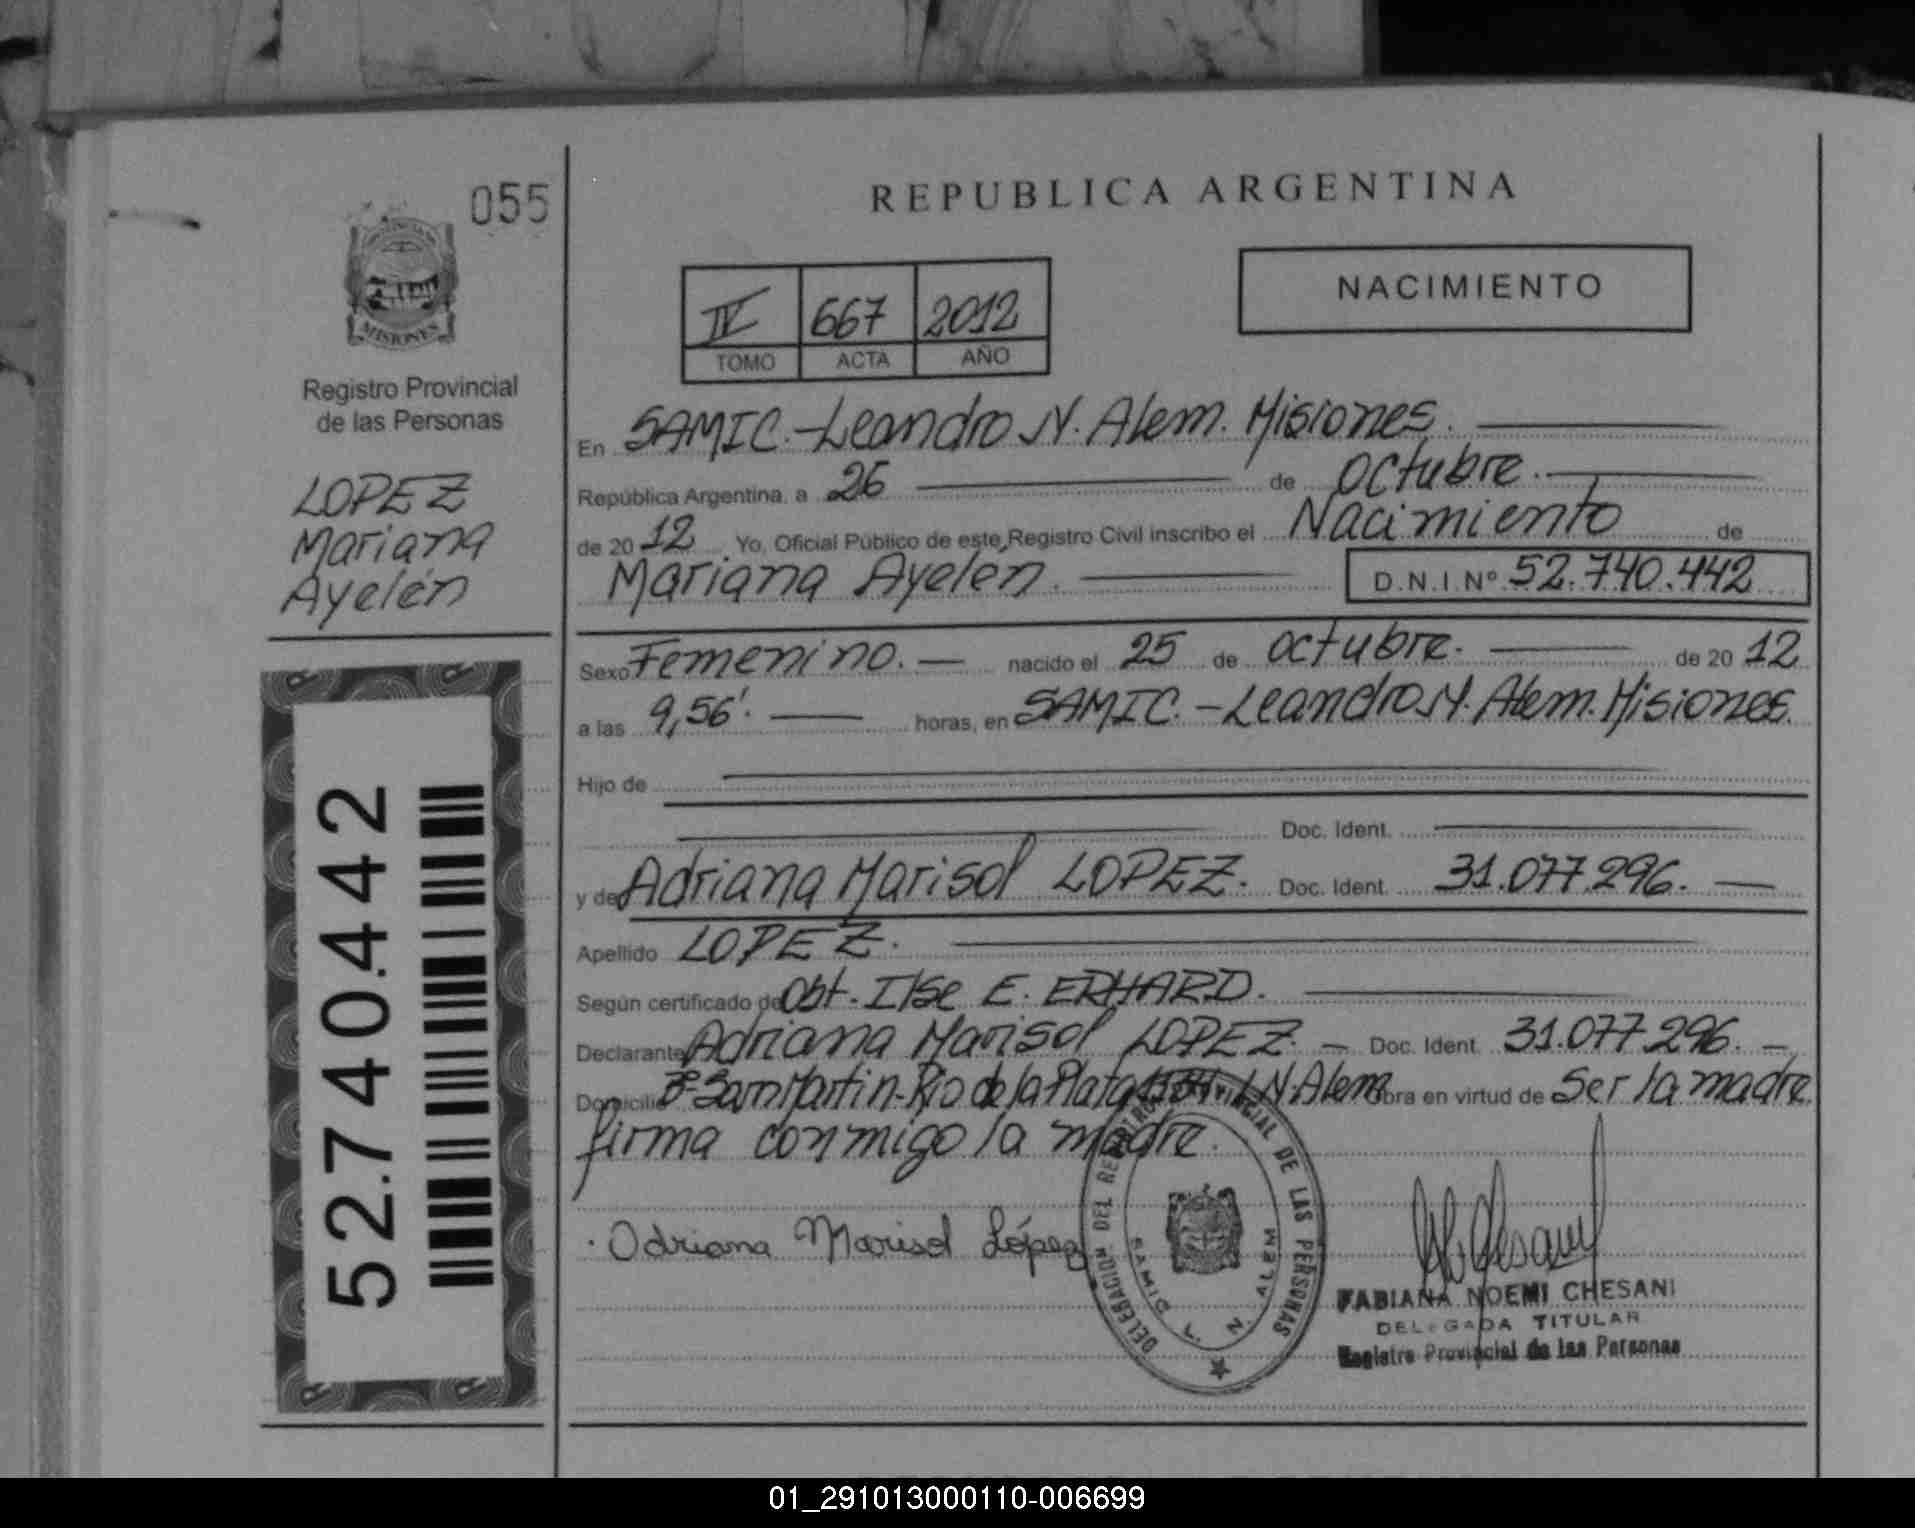 055
REPUBLICA ARGENTINA
MISIONES
Registro Provincial
de las Personas
LOPEZ
Mariana
Ayelén
52.740.442
IV 667 2012
TOMO ACTA AÑO
NACIMIENTO
En SAMIC.-Leandro N. Alem. Misiones.
República Argentina, a 26 de octubre.
de 2012 Yo, Oficial Público de este Registro Civil inscribo el Nacimiento de
Mariana Ayelén. D.N.I.Nº 52.740.442
Sexo Femenino. nacido el 25 de octubre. de 2012
a las 9,56'. horas, en SAMIC.-Leandro N. Alem. Misiones.
Hijo de
Doc. Ident.
y de Adriana Marisol LOPEZ. Doc. Ident. 31.077.296.
Apellido LOPEZ.
Según certificado de Obt. Ilse E. ERHARD.
Declarante Adriana Marisol LOPEZ. Doc. Ident. 31.077.296.
Domicilio Bº San Martin-Rio de la Plata L.N.Alem obra en virtud de ser la madre
firma conmigo la madre.
Adriana Marisol López
DELEGACION DEL REGISTRO PROVINCIAL DE LAS PERSONAS
SAMIC L. N. ALEM
FABIANA NOEMI CHESANI
DELEGADA TITULAR
Registro Provincial de las Personas
01_291013000110-006699